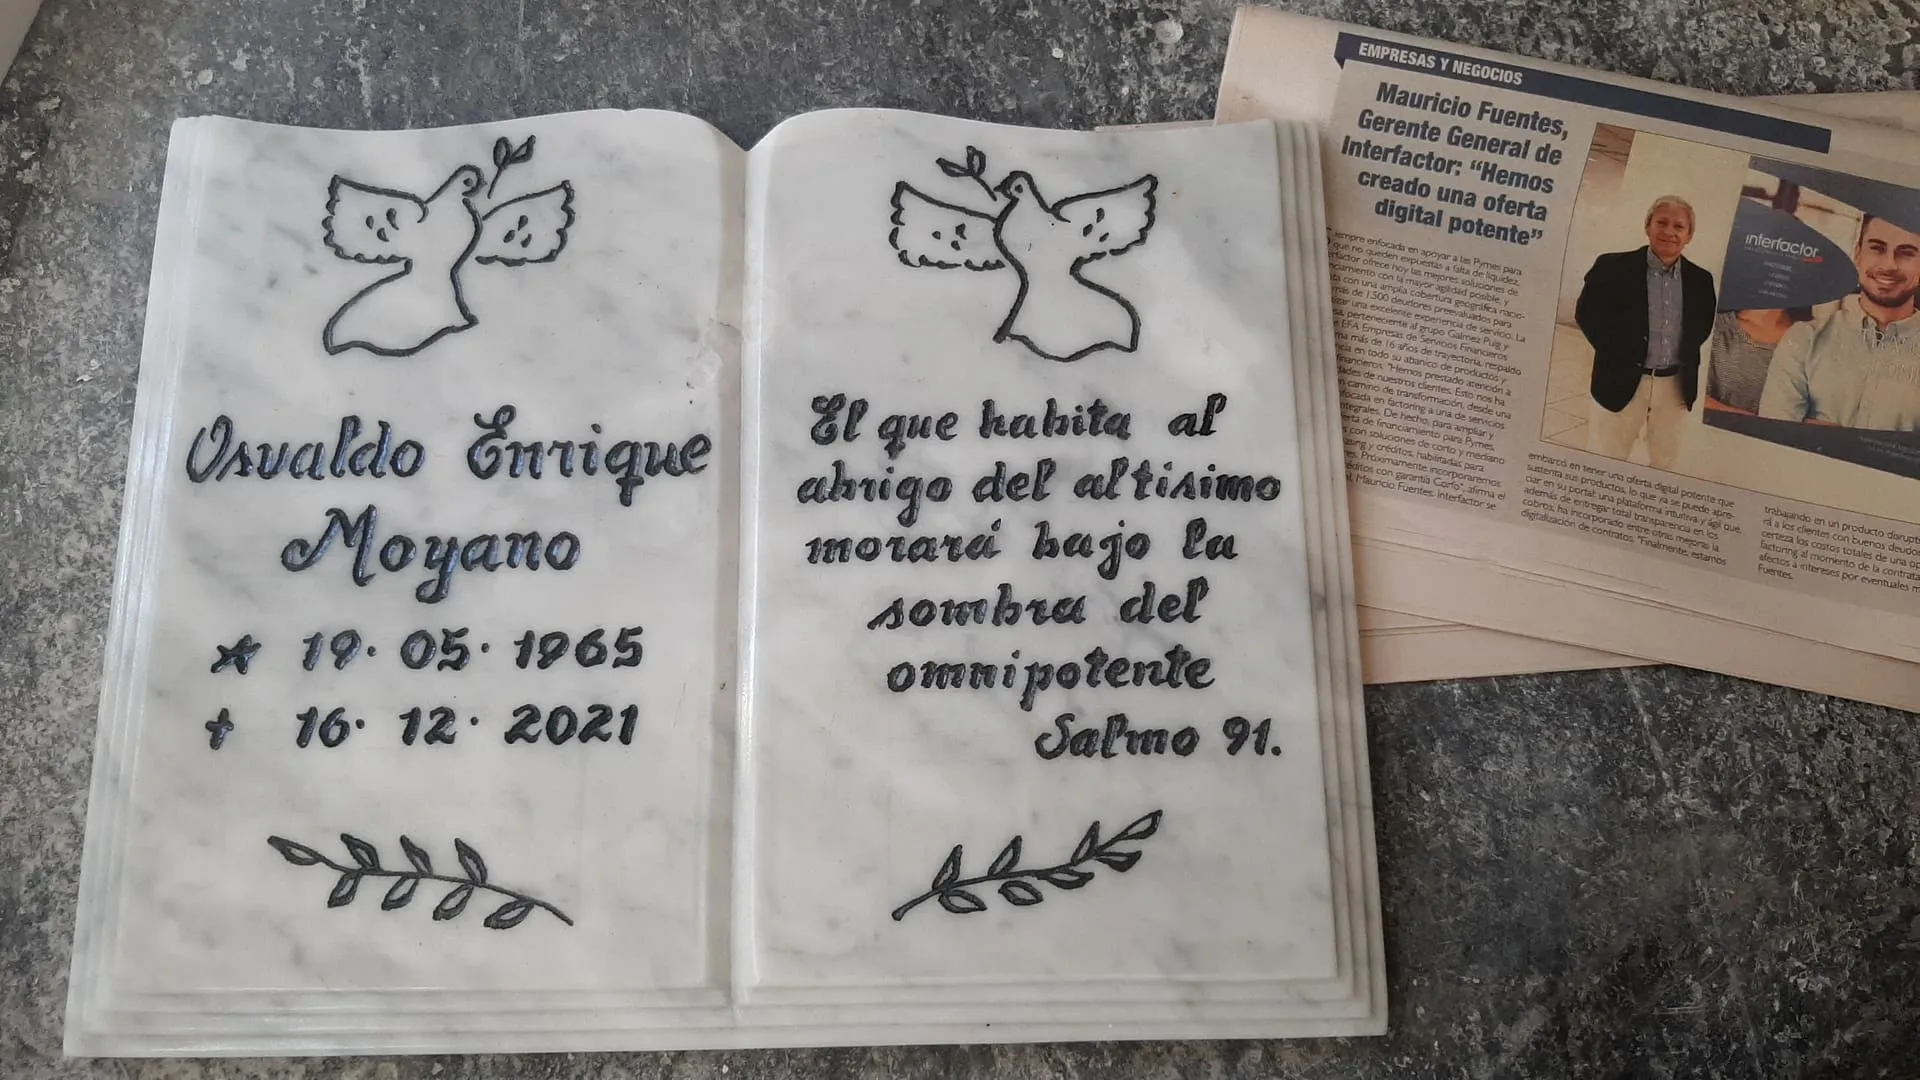 Osvaldo Enrique
Moyano
19. 05. 1965
16. 12. 2021
El que habita al
abrigo del altisimo
morará bajo la
sombra del
omnipotente
Salmo 91.
EMPRESAS Y NEGOCIOS
Mauricio Fuentes,
Gerente General de
Interfactor: “Hemos
creado una oferta
digital potente”
empre enfocada en apoyar a las Pymes para
que no queden expuestas a falta de liquidez,
rfactor ofrece hoy las mejores soluciones de
nciamiento con la mayor agilidad posible, y
ta con una amplia cobertura geográfica nacio-
más de 1.500 deudores preevaluados para
izar una excelente experiencia de servicio. La
sa, perteneciente al grupo Gálmez Puig y
EFA Empresas de Servicios Financieros
ma más de 16 años de trayectoria, respaldo
ncia en todo su abanico de productos y
financieros. "Hemos prestado atención a
dades de nuestros clientes. Esto nos ha
camino de transformación, desde una
focada en factoring a una de servicios
ntegrales. De hecho, para ampliar y
erta de financiamiento para Pymes,
s con soluciones de corto y mediano
asing y créditos, habilitadas para
es. Próximamente incorporaremos
éditos con garantía Corfo", afirma el
l, Mauricio Fuentes. Interfactor se
interfactor
embarcó en tener una oferta digital potente que
sustenta sus productos, lo que ya se puede apre-
ciar en su portal: una plataforma intuitiva y ágil que,
además de entregar total transparencia en los
cobros, ha incorporado entre otras mejoras la
digitalización de contratos. "Finalmente, estamos
trabajando en un producto disrupt
rá a los clientes con buenos deudo
certeza los costos totales de una op
factoring al momento de la contrata
afectos a intereses por eventuales m
Fuentes.